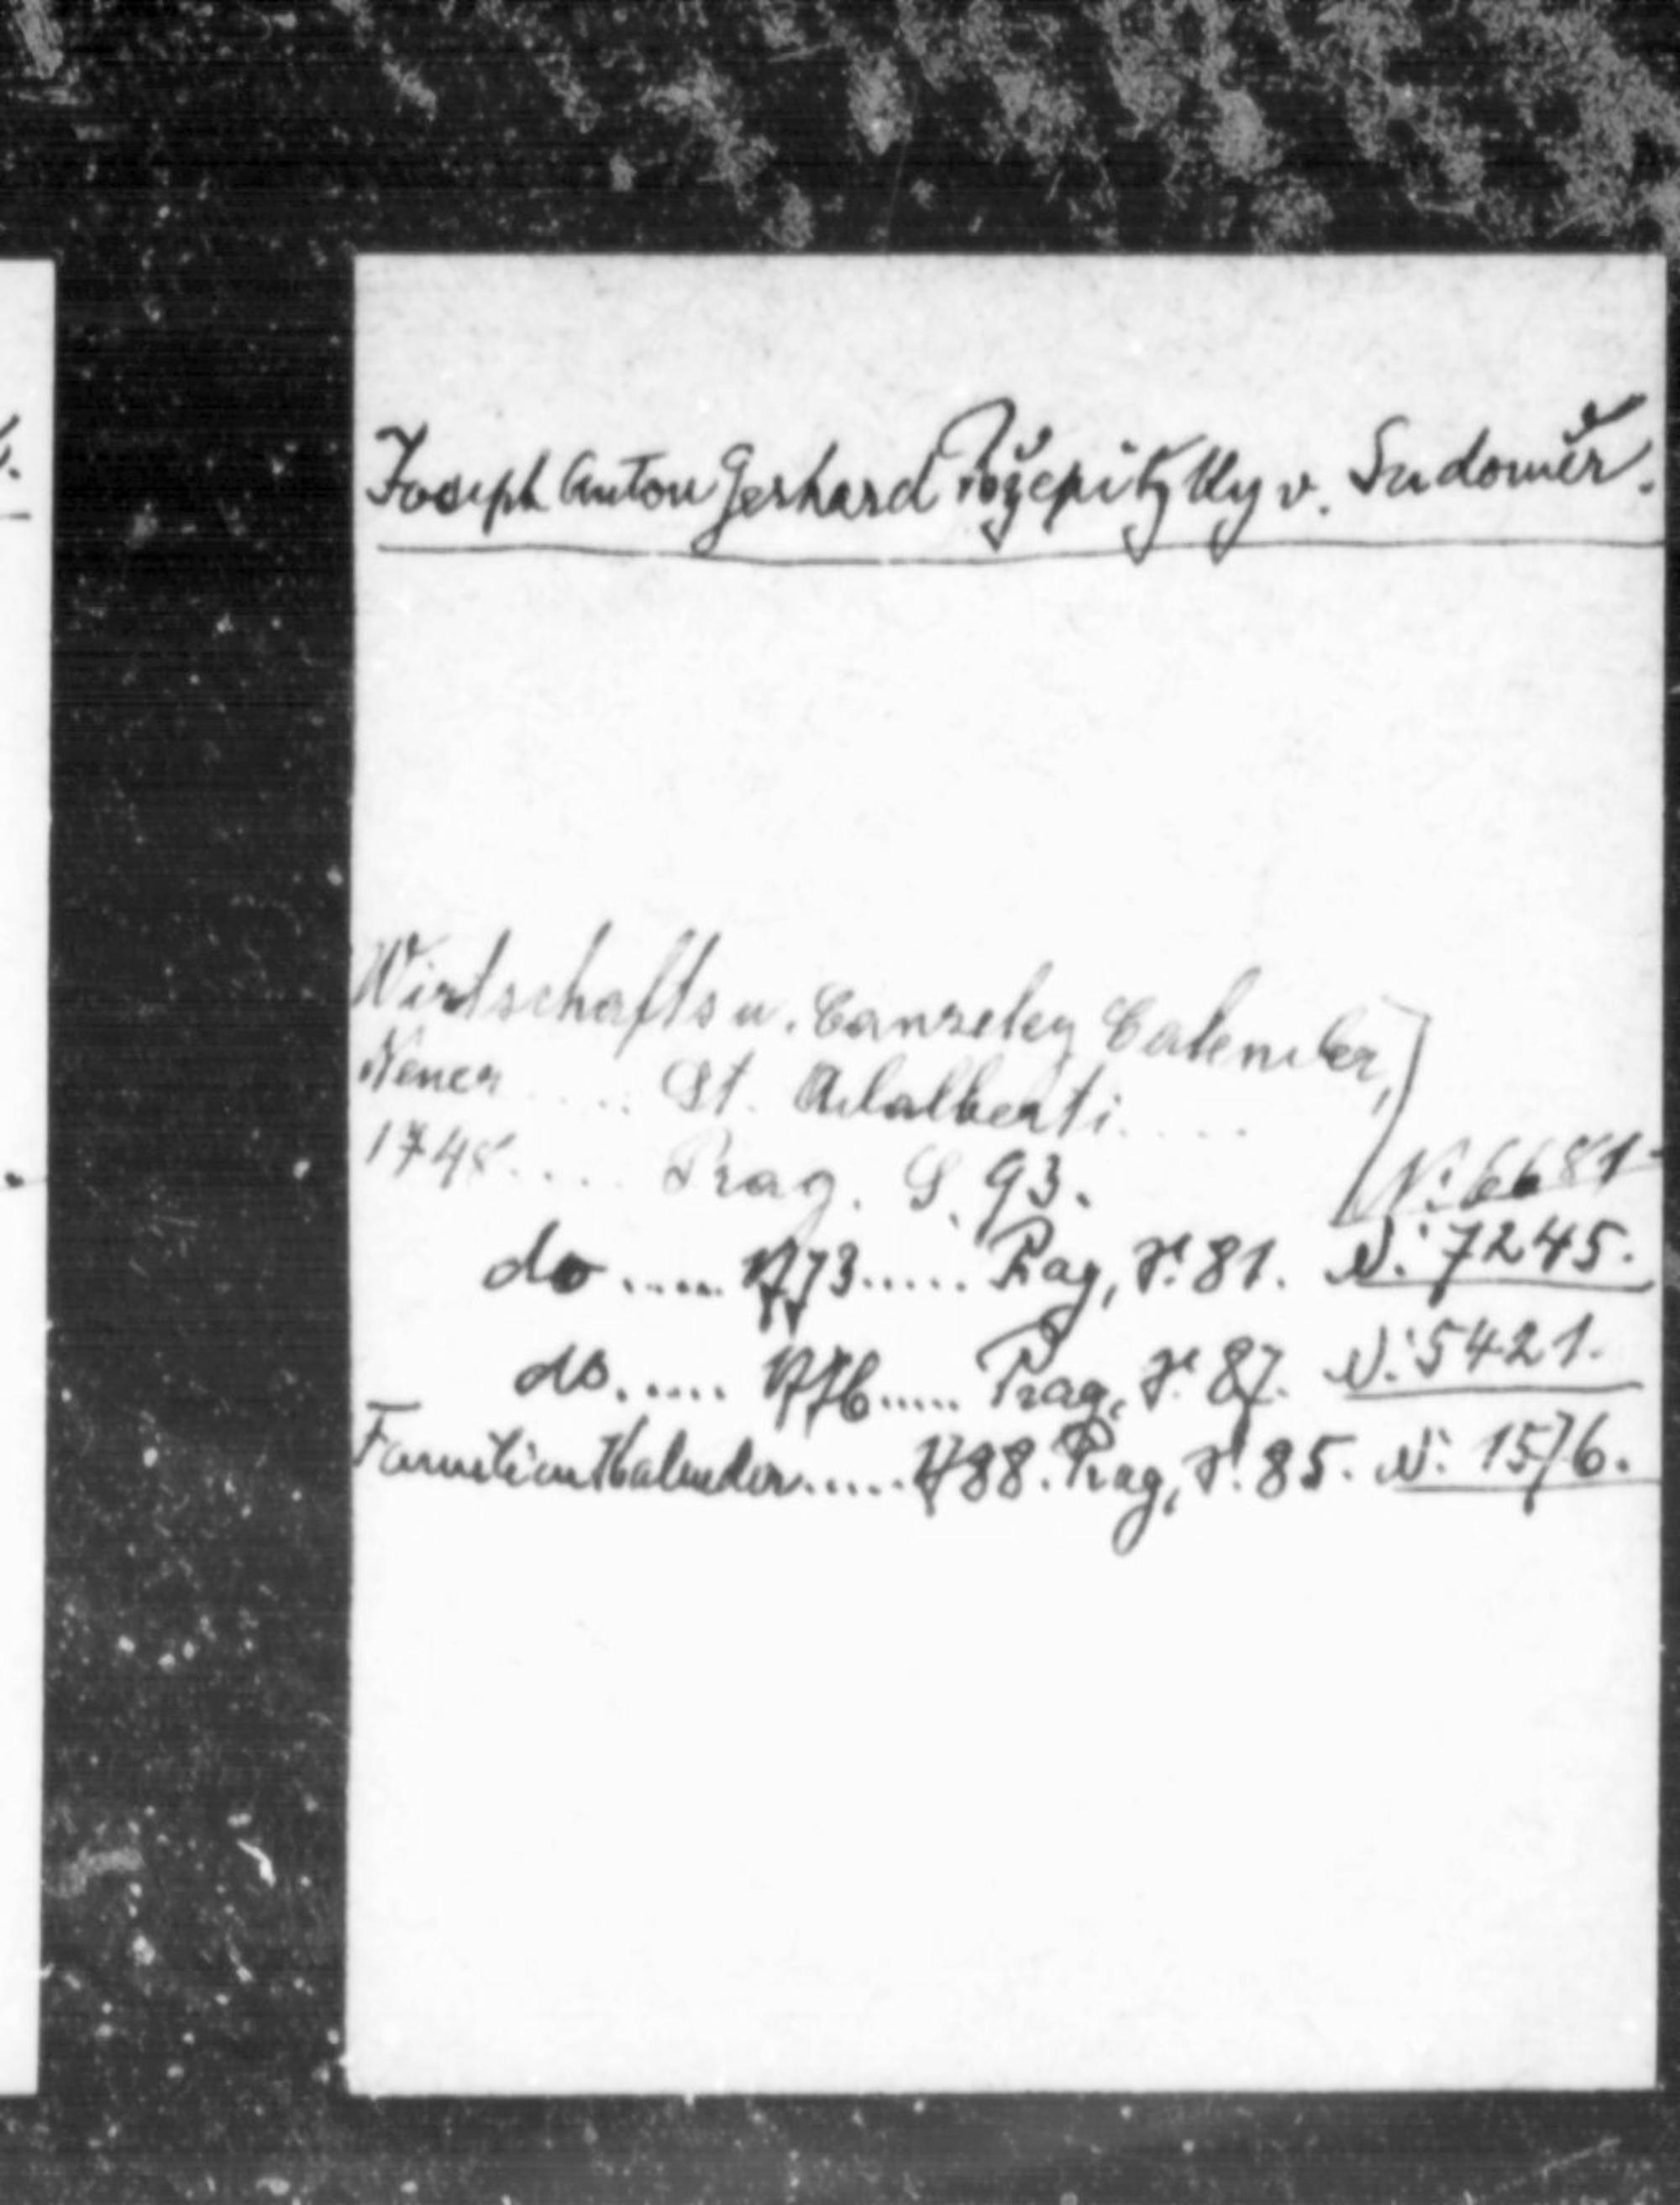 Joseph Anton Gerhard Ržepitzky v. Sudoměr.
Wirtschafts u. Canzeley Calender,
Neuer .... St. Adalberti ....
1748 .... Prag. S. 93. N: 6681
do ..... 1773 ..... Prag, S. 81. N: 7245.
do ..... 1776 ..... Prag, S. 87. N: 5421.
Familien Kalender ..... 1788. Prag, S. 85. N: 1576.